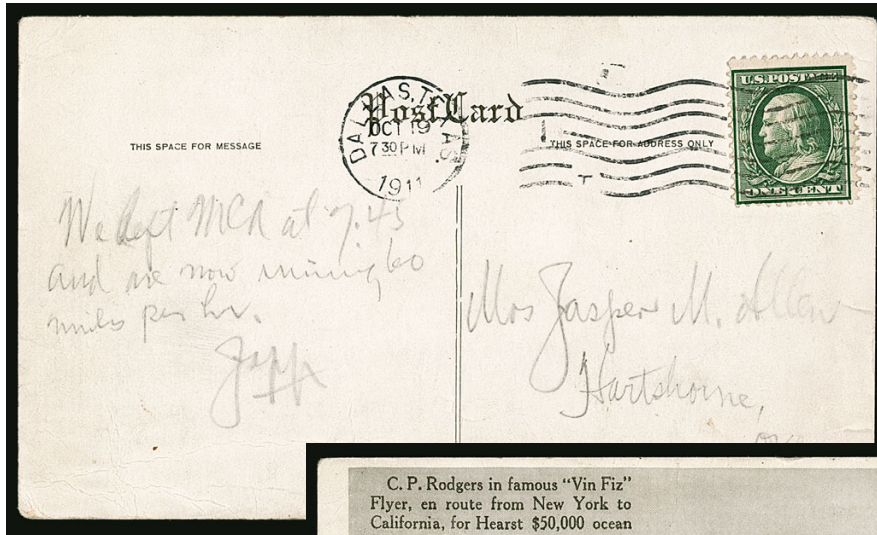 Post Card
DALLAS, TEXAS.
OCT 19
7 30 PM
1911
U.S. POSTAGE
ONE CENT
THIS SPACE FOR MESSAGE
THIS SPACE FOR ADDRESS ONLY
We left MCA at 7.45
and are now running 60
miles per hr.
Mrs Jasper M. Allen
Hartshorne,
C. P. Rodgers in famous “Vin Fiz”
Flyer, en route from New York to
California, for Hearst $50,000 ocean